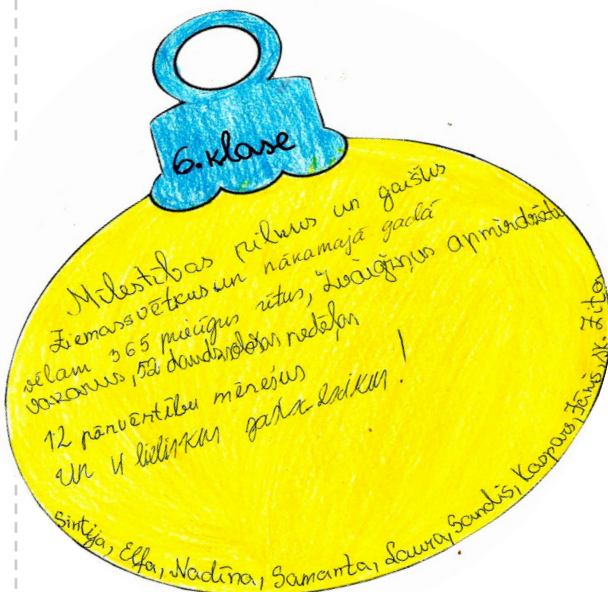 6. klase
Mīlestības pilnus un gaišus
Ziemassvētkus un nākamajā gadā
vēlam 365 mierīgus rītus, zvaigžņus apmirdzētu
vakarus, 52 daudzsološas nedēļas
12 pārvērtību mēnešus
un 4 lieliskus gadalaikus!
Sintija, Elfa, Nadīna, Samanta, Laura, Sandis, Kaspars, Jānis, sk. Zita